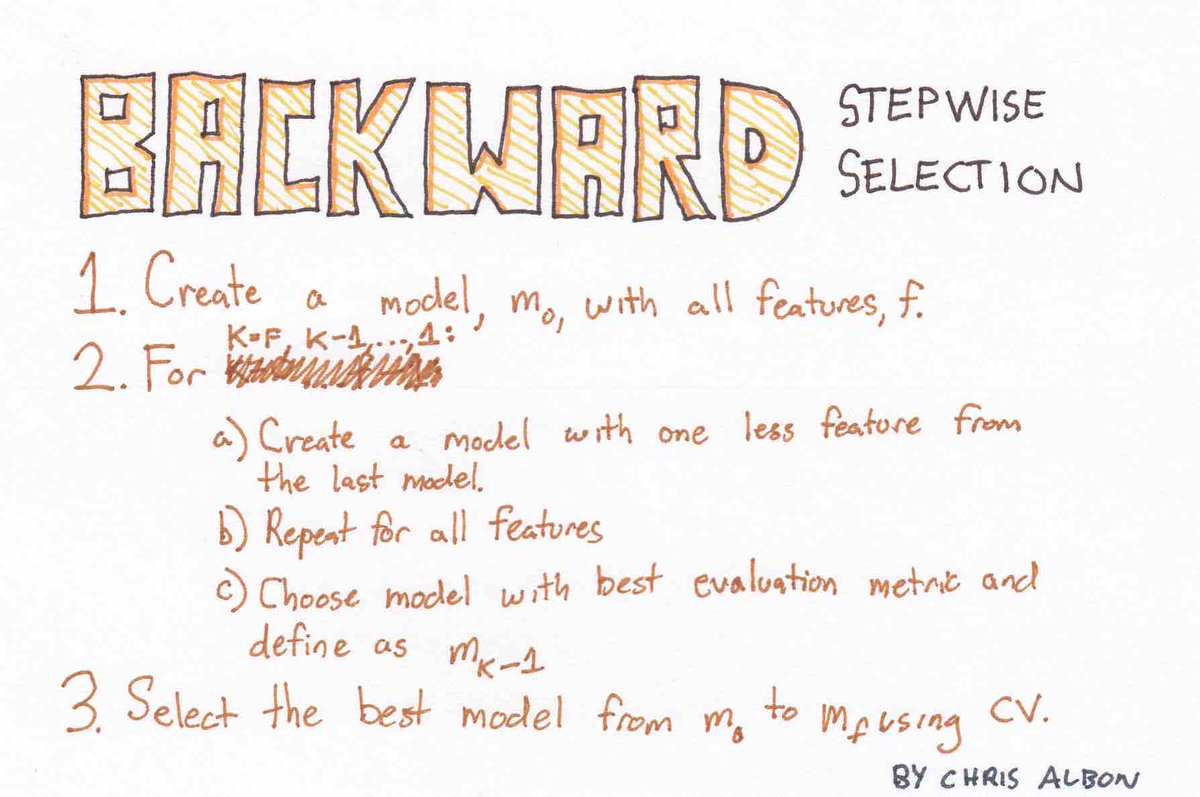 BACKWARD STEPWISE
SELECTION
1. Create a model, m₀, with all features, f.
K=F, K-1,...,1:
2. For
a) Create a model with one less feature from
the last model.
b) Repeat for all features
c) Choose model with best evaluation metric and
define as mₖ₋₁
3. Select the best model from m₀ to m_f using CV.
BY CHRIS ALBON